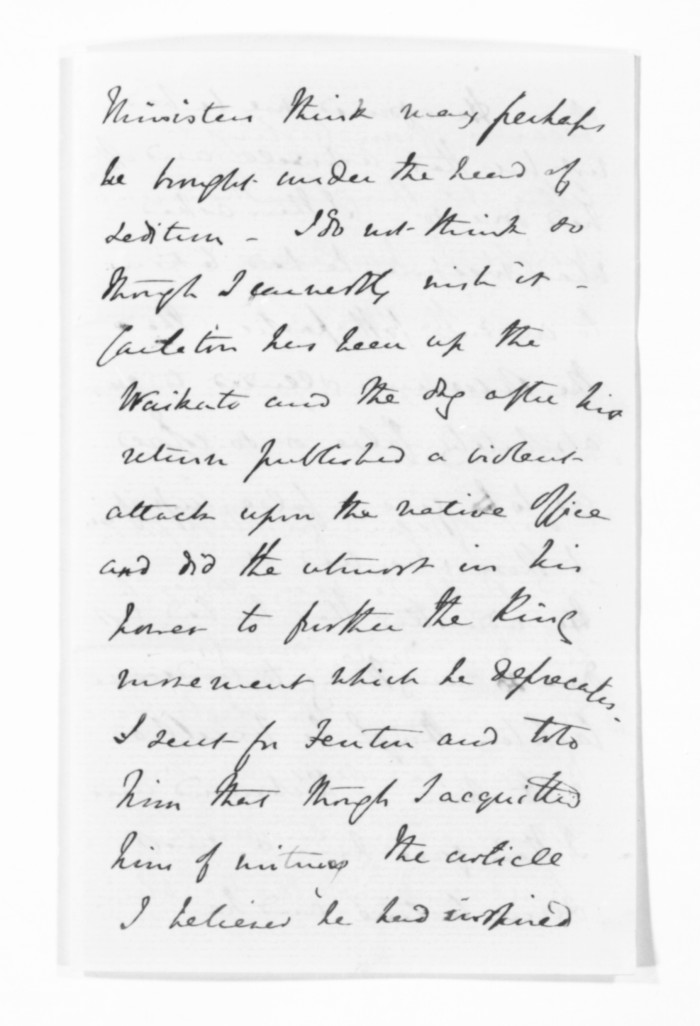 Ministers think may perhaps
be brought under the head of
sedition - I do not think so
though I earnestly wish it -
Carleton has been up the
Waikato and the day after his
return published a violent
attack upon the native Office
and did the utmost in his
power to further the King
movement which he deprecates.
I sent for Fenton and told
him that though I acquitted
him of writing the article
I believed he had inspired